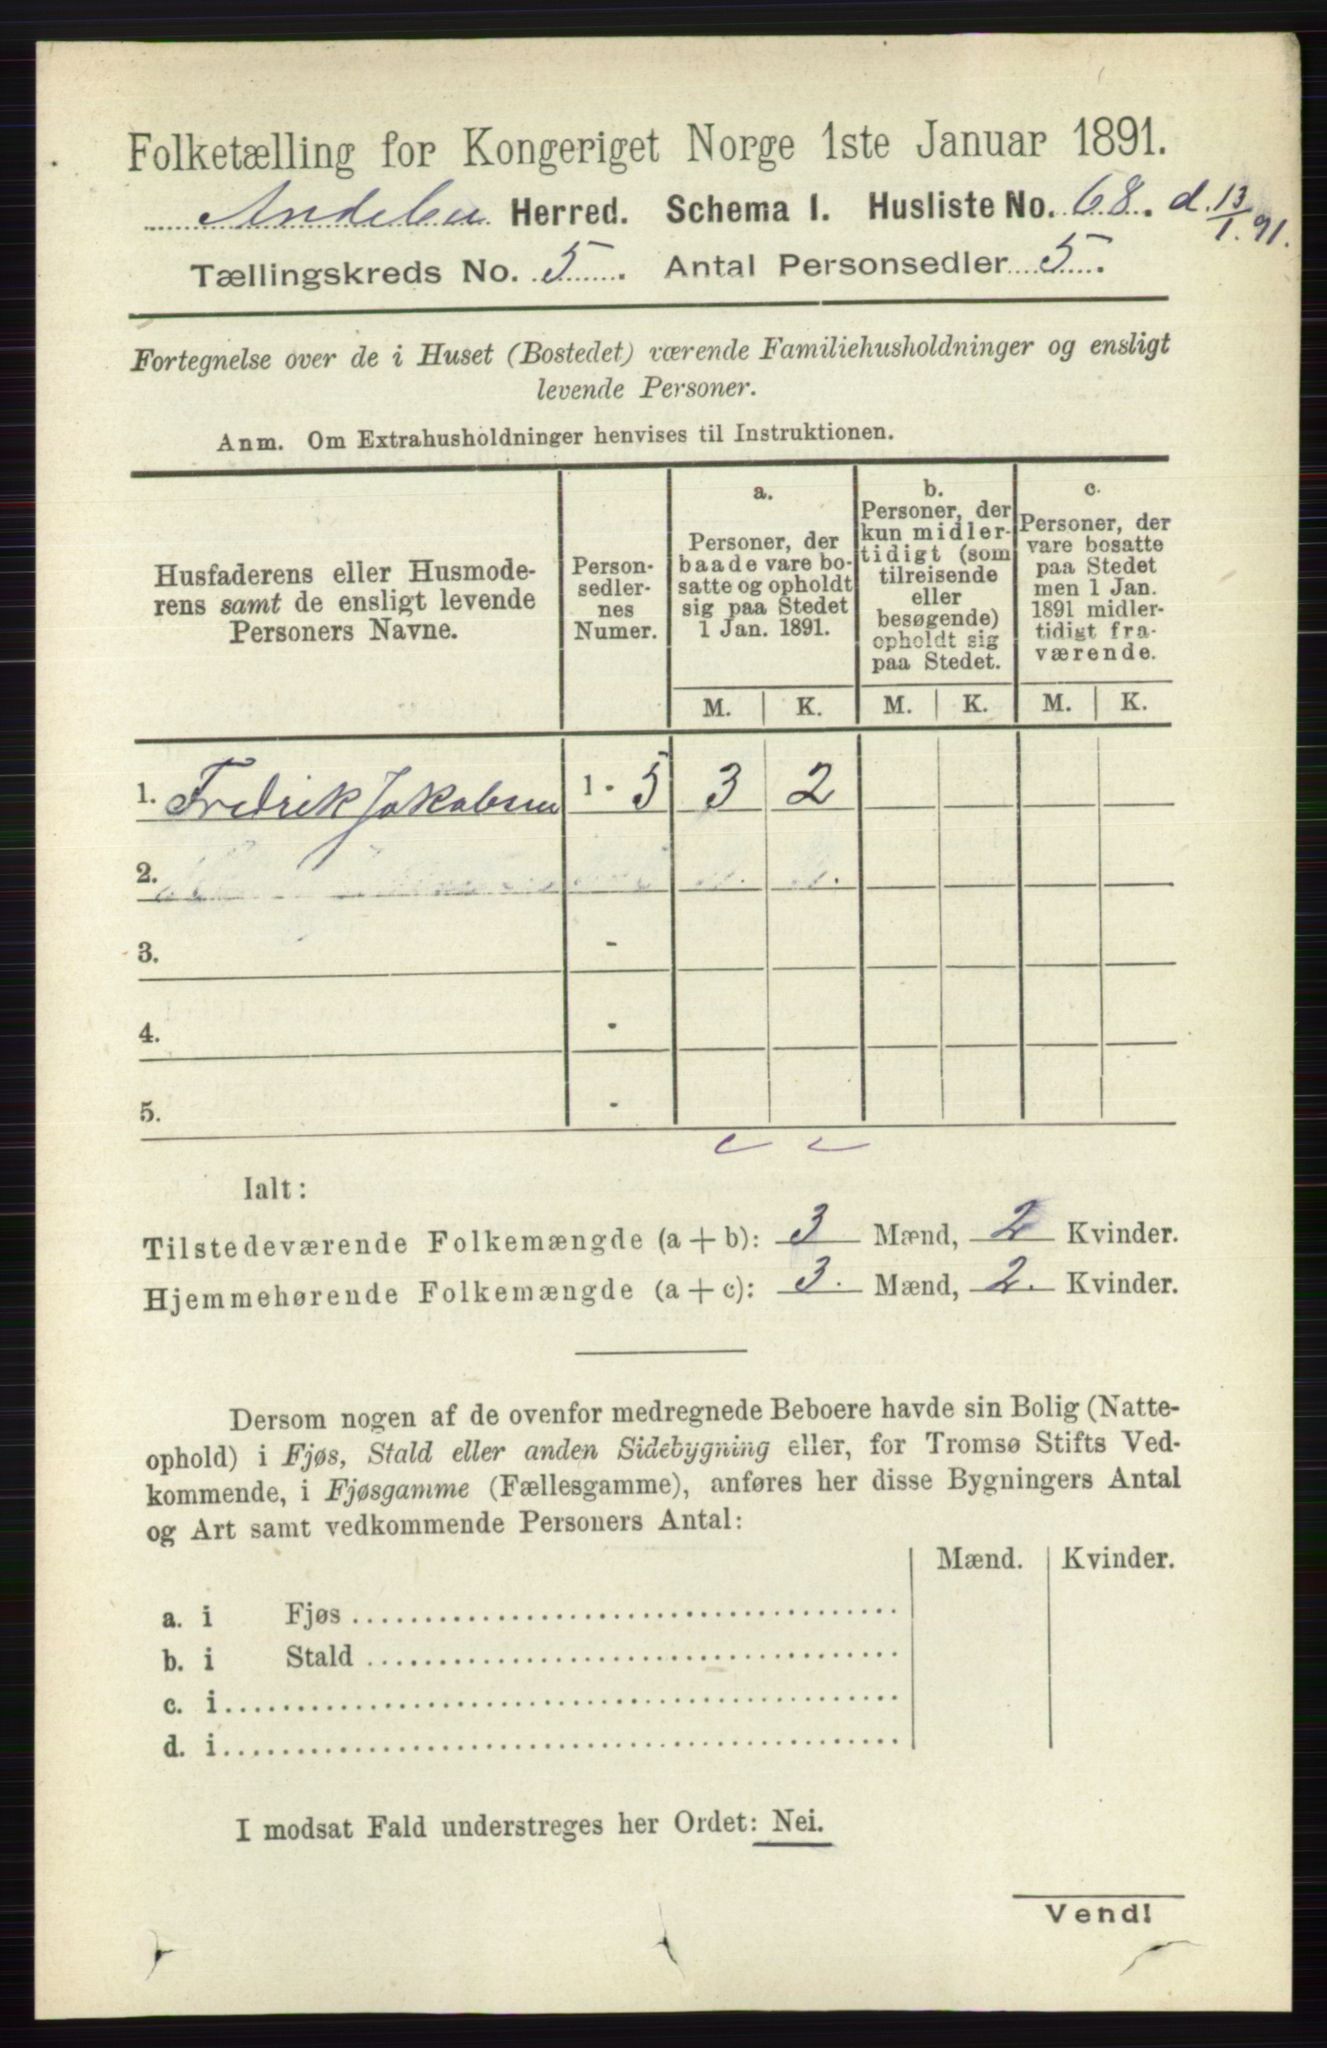 Folketælling for Kongeriget Norge 1ste Januar 1891.
Andebu Herred. Schema I. Husliste No. 68. d. 13/1. 91.
Tællingskreds No. 5. Antal Personsedler 5.
Fortegnelse over de i Huset (Bostedet) værende Familiehusholdninger og ensligt
levende Personer.
Anm. Om Extrahusholdninger henvises til Instruktionen.
Husfaderens eller Husmode-
rens samt de ensligt levende
Personers Navne.
Person-
sedler-
nes
Numer.
a.
Personer, der
baade vare bo-
satte og opholdt
sig paa Stedet
1 Jan. 1891.
b.
Personer, der
kun midler-
tidigt (som
tilreisende
eller
besøgende)
opholdt sig
paa Stedet.
c.
Personer, der
vare bosatte
paa Stedet
men 1 Jan.
1891 midler-
tidigt fra-
værende.
M. K. M. K. M. K.
1. Fredrik Jakobsen 1 - 5 3 2
2.
3. -
4. -
5. -
Ialt:
Tilstedeværende Folkemængde (a + b): 3 Mænd, 2 Kvinder.
Hjemmehørende Folkemængde (a + c): 3. Mænd, 2. Kvinder.
Dersom nogen af de ovenfor medregnede Beboere havde sin Bolig (Natte-
ophold) i Fjøs, Stald eller anden Sidebygning eller, for Tromsø Stifts Ved-
kommende, i Fjøsgamme (Fællesgamme), anføres her disse Bygningers Antal
og Art samt vedkommende Personers Antal:
Mænd. Kvinder.
a. i Fjøs
b. i Stald
c. i
d. i
I modsat Fald understreges her Ordet: Nei.
Vend!